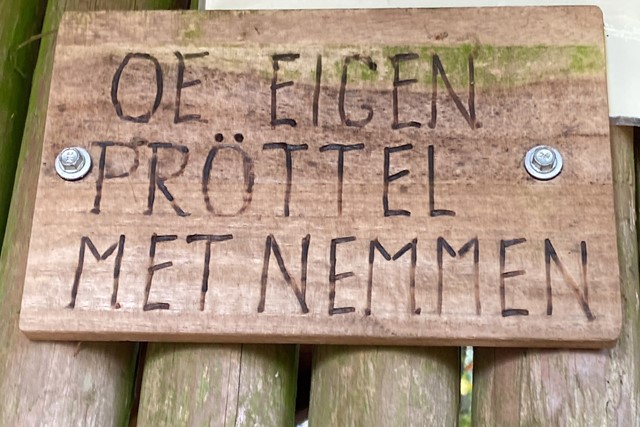 OE EIGEN
PRÖTTEL
MET NEMMEN